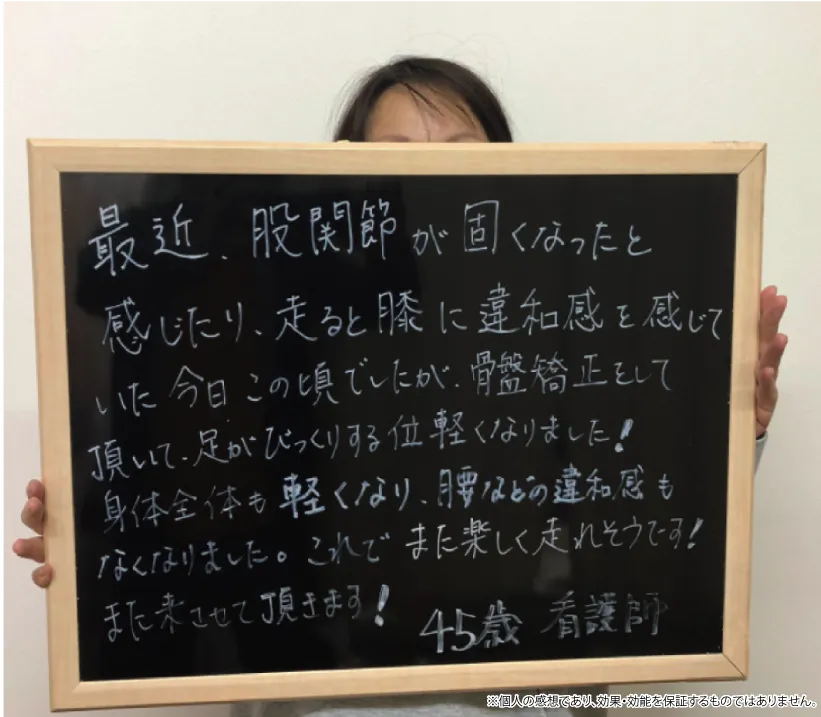 最近、股関節が固くなったと
感じたり、走ると膝に違和感を感じて
いた今日この頃でしたが、骨盤矯正をして
頂いて、足がびっくりする位軽くなりました!
身体全体も軽くなり、腰などの違和感も
なくなりました。これでまた楽しく走れそうです!
また来させて頂きます!
45歳 看護師
※個人の感想であり、効果・効能を保証するものではありません。